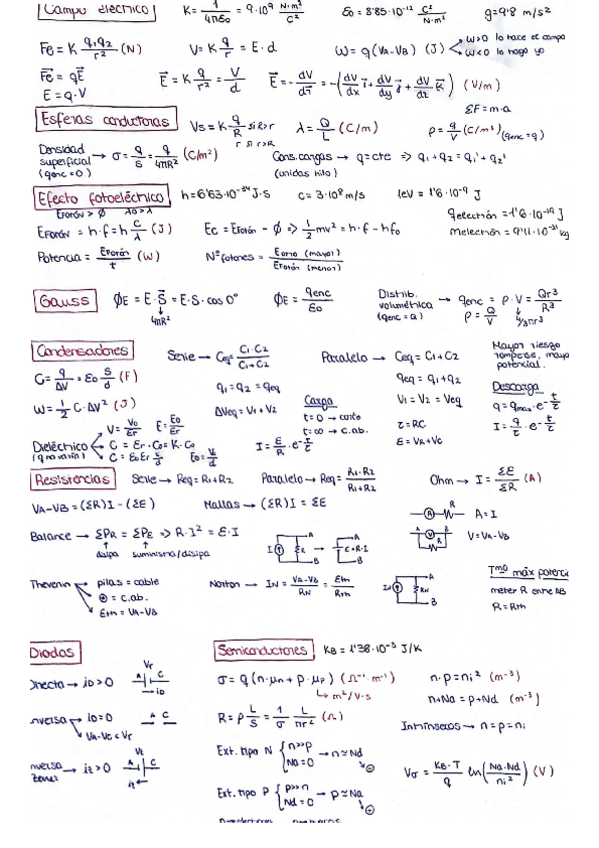 Campo eléctrico K = 1/4πε₀ = 9·10⁹ N·m²/C² ε₀ = 8'85·10⁻¹² C²/N·m² g=9'8 m/s²
Fe = K q₁q₂/r² (N) V = K q/r = E·d W = q(VA-VB) (J) W>0 lo hace el campo
W<0 lo hago yo
F⃗e = qE⃗ E⃗ = K q/r² = V/d E⃗ = -dV/dr⃗ = -(dV/dx i⃗ + dV/dy j⃗ + dV/dz k⃗) (V/m)
E = q·V
ΣF = m·a
Esferas conductoras Vs = K q/R si R>r λ = Q/L (C/m) ρ = q/V (C/m³) (qenc = q)
r si r>R
Densidad superficial (qenc = 0) → σ = q/S = q/4πR² (C/m²) Cons. cargas → q = cte => q₁+q₂ = q₁'+q₂'
(unidas hilo)
Efecto fotoeléctrico h = 6'63·10⁻³⁴ J·s c = 3·10⁸ m/s 1eV = 1'6·10⁻¹⁹ J
Efotón > ϕ λ0 > λ
Efotón = h·f = h c/λ (J) Ec = Efotón - ϕ => 1/2 mv² = h·f - hf₀ qelectrón = 1'6·10⁻¹⁹ J
melectrón = 9'11·10⁻³¹ kg
Potencia = Efotón/t (W) Nº fotones = (mayor)/Efotón (menor)
Gauss ϕE = E·S⃗ = E·S·cos 0º ϕE = qenc/ε₀ Distrib. volumétrica (qenc = a) → qenc = ρ·V = Qr³/R³
4πR² ρ = Q/V 4/3πr³
Condensadores Serie → Ceq = C₁·C₂/C₁+C₂ Paralelo → Ceq = C₁+C₂ Mayor riesgo romperse, mayo potencial.
C = q/ΔV = ε₀ S/d (F) q₁ = q₂ = qeq qeq = q₁+q₂
W = 1/2 C·ΔV² (J) ΔVeq = V₁+V₂ Carga V₁ = V₂ = Veq Descarga
t=0 → corto τ = RC q = qmax·e^-t/τ
V = V₀/εr E = E₀/εr t=∞ → c.ab. ε = VR+Vc I = q/τ·e^-t/τ
Dieléctrico (q no varía) C = εr·C₀ = K·C₀ I = E/R·e^-t/τ
C = ε₀εr S/d E₀ = V₀/d
Resistencias Serie → Req = R₁+R₂ Paralelo → Req = R₁·R₂/R₁+R₂ Ohm → I = ΣE/ΣR (A)
VA-VB = (ΣR)I - (ΣE) Mallas → (ΣR)I = ΣE R
A A = I
Balance → ΣPR = ΣPE => R·I² = E·I A V B V = VA-VB
disipa suministra/disipa I R A B → A E=R·I B R
Thevenin → pilas = cable Norton → IN = VA-VB/RN = Eth/Rth IN RN A B Tmª máx potenci
= c.ab. meter R entre AB
Eth = VA-VB R = Rth
Diodos Semiconductores KB = 1'38·10⁻³ J/K
Directa → iD>0 Vr A C iD σ = q(n·μn + p·μp) (Ω⁻¹·m⁻¹) n·p = ni² (m⁻³)
m²/V·s n+Na = p+Nd (m⁻³)
nversa → iD=0 A C R = ρ L/S = 1/σ L/πr² (Ω) Intrínsecos → n=p=ni
VA-VC < Vr
nversa zener → iz>0 Vz A C iz Ext. tipo N n>>p Na=0 → n≃Nd
Vσ = KB·T/q ln(Na·Nd/ni²) (V)
Ext. tipo P p>>n Nd=0 → p≃Na